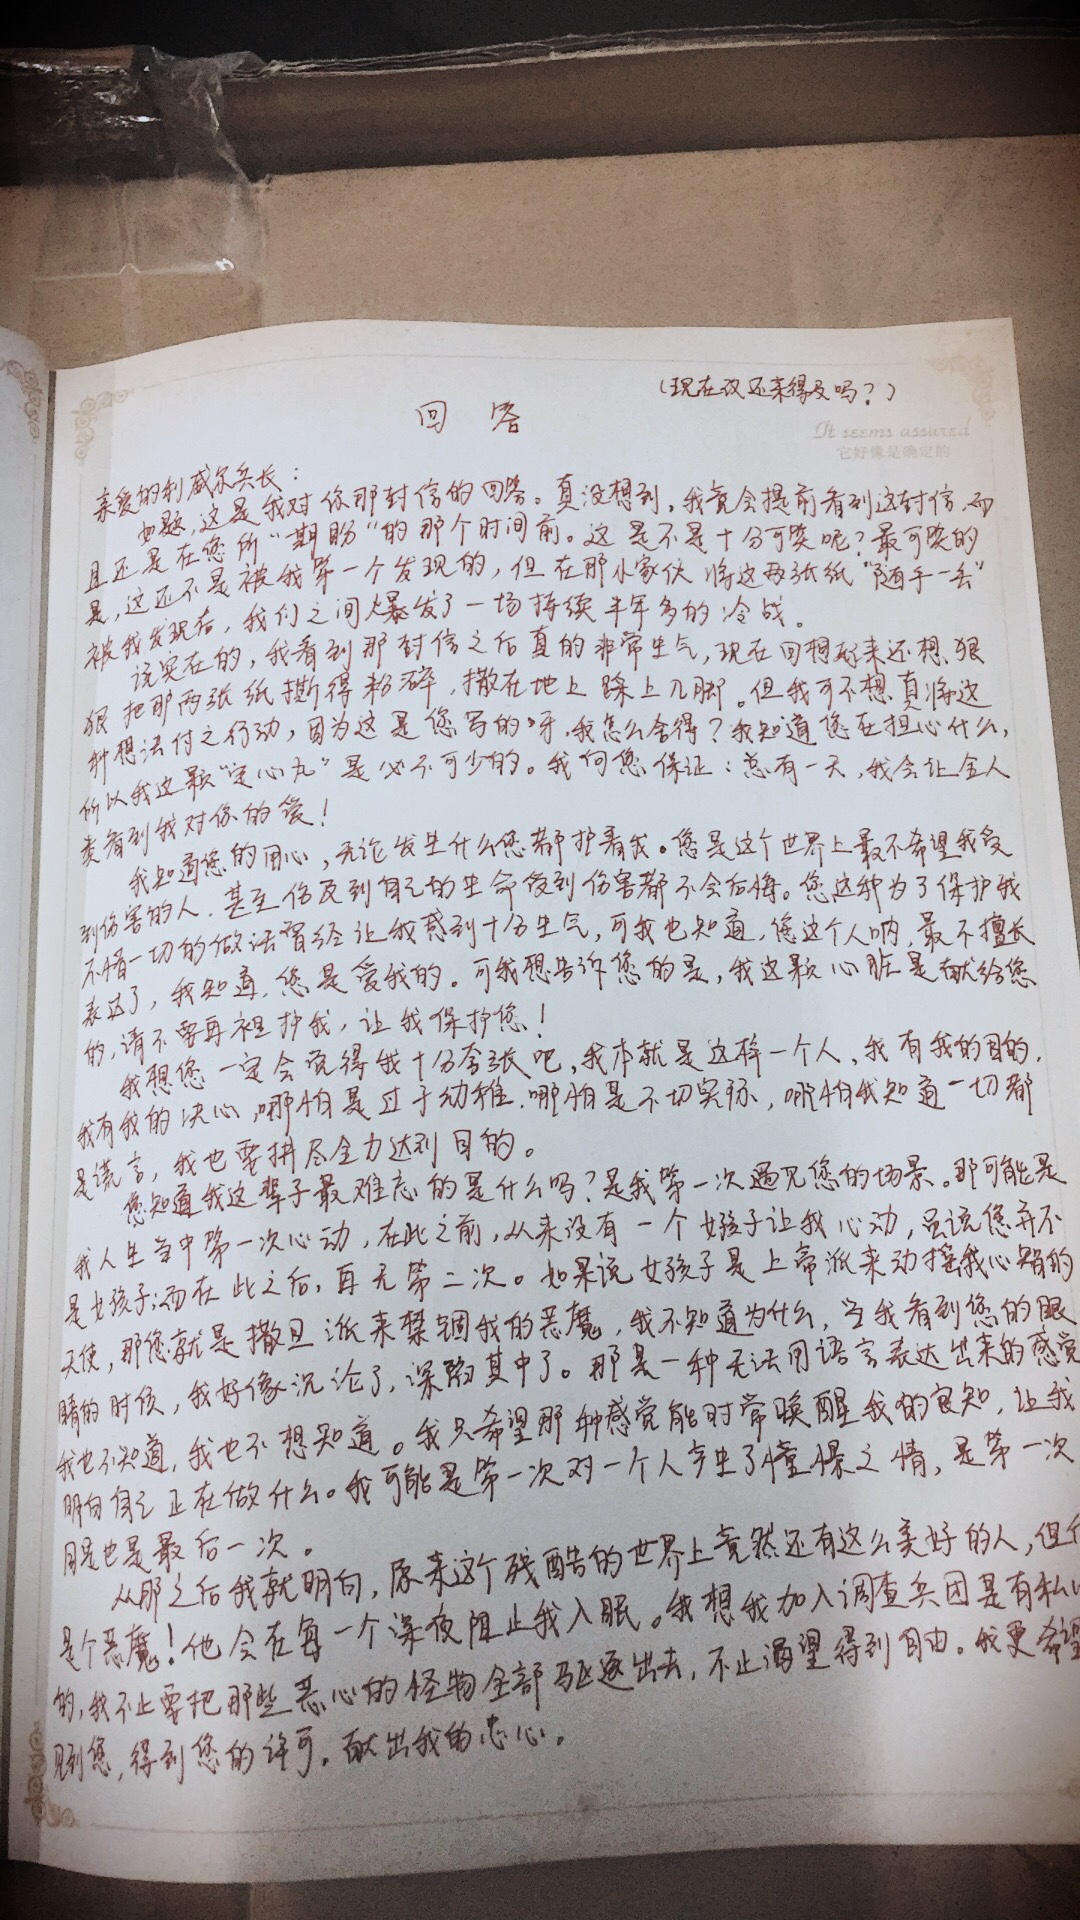 (现在说还来得及吗？)
回 答
It seems assured
它好像是确定的
亲爱的利威尔兵长：
如题，这是我对你那封信的回答。真没想到，我竟会提前看到这封信，而
且还是在您所“期盼”的那个时间前。这是不是十分可笑呢？最可笑的
是，这还不是被我第一个发现的，但在那小家伙将这两张纸“随手一丢”
被我发现后，我们之间爆发了一场持续半年多的冷战。
说实在的，我看到那封信之后真的非常生气，现在回想起来还想狠
狠把那两张纸撕得粉碎，撒在地上踩上几脚。但我可不想真将这
种想法付之行动，因为这是您写的呀，我怎么舍得？我知道您在担心什么，
所以我这颗“定心丸”是必不可少的。我向您保证：总有一天，我会让全人
类看到我对你的爱！
我知道您的用心，无论发生什么您都护着我。您是这个世界上最不希望我受
到伤害的人，甚至伤及到自己的生命受到伤害都不会后悔。您这种为了保护我
不惜一切的做法曾经让我感到十分生气，可我也知道，您这个人呐，最不擅长
表达了，我知道，您是爱我的。可我想告诉您的是，我这颗心脏是献给您
的，请不要再袒护我，让我保护您！
我想您一定会觉得我十分夸张吧，我本就是这样一个人，我有我的目的，
我有我的决心，哪怕是过于幼稚，哪怕是不切实际，哪怕我知道一切都
是谎言，我也要拼尽全力达到目的。
您知道我这辈子最难忘的是什么吗？是我第一次遇见您的场景。那可能是
我人生当中第一次心动，在此之前，从来没有一个女孩子让我心动，虽说您并不
是女孩子；而在此之后，再无第二次。如果说女孩子是上帝派来动摇我心智的
天使，那您就是撒旦派来禁锢我的恶魔，我不知道为什么，当我看到您的眼
睛的时候，我好像沉沦了，深陷其中了。那是一种无法用语言表达出来的感觉
我也不知道，我也不想知道。我只希望那种感觉能时常唤醒我的良知，让我
明白自己正在做什么。我可能是第一次对一个人产生了憧憬之情，是第一次
同是也是最后一次。
从那之后我就明白，原来这个残酷的世界上竟然还有这么美好的人，但
是个恶魔！他会在每一个深夜阻止我入眠。我想我加入调查兵团是有私
的，我不止要把那些恶心的怪物全部驱逐出去，不止渴望得到自由。我更希望
见到您，得到您的许可。献出我的忠心。